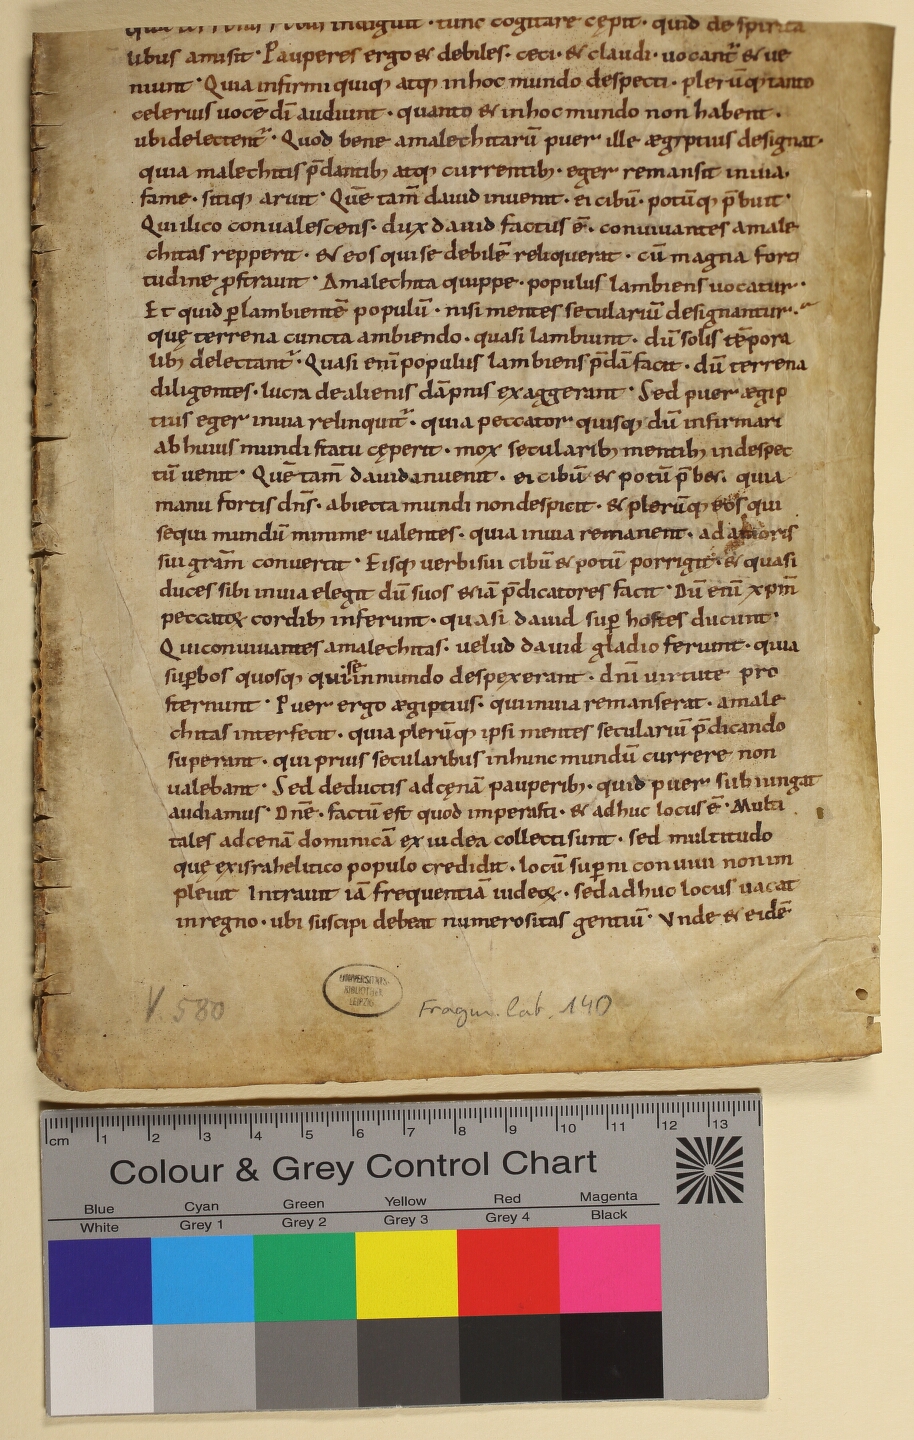 indiguit · tunc cogitare cępit · quid de spirita
libus amisit · Pauperes ergo & debiles · ceci · & claudi · uocant᷑ & ue
niunt · Quia infirmi quiq; atq; in hoc mundo despecti · plerūq; tanto
celerius uocē dī audiunt · quanto & in hoc mundo non habent ·
ubi delectent᷑ · Quod bene amalechitarū puer ille ægyptius designat ·
quia malechitis p̄dantib; atq; currentib; · eger remansit in uia ·
fame · sitiq; aruit · Quē tam̄ dauid inuenit · ei cibū · potūq; p̄buit ·
Qui ilico conualescens · dux dauid factus ē · conuiuantes amale
chitas repperit · & eos qui se debilē reliquerat · cū magna forti
tudine ꝓstrauit · Amalechita quippe · populus lambens uocatur ·
Et quid ꝑ lambientē populū · nisi mentes seculariū designantur ·
quę terrena cuncta ambiendo · quasi lambiunt · dū solis tēpora
lib; delectant᷑ · Quasi enī populus lambiens p̄dā facit · dū terrena
diligentes · lucra de alienis dāpnis exaggerant · Sed puer ægip
tius eger in uia relinquit᷑ · quia peccator quisq; dū infirmari
ab huius mundi statu cęperit · mox secularib; mentib; in despec
tū uenit · Quē tam̄ dauid inuenit · ei cibū & potū p̄b& · quia
manu fortis dn̄s · abiecta mundi non despicit · & plerūq; eos qui
sequi mundū minime ualentes · quia in uia remanent · ad amoris
sui grām conuertit · Eisq; uerbi sui cibū & potū porrigit · & quasi
duces sibi in uia elegit dū suos &iā p̄dicatores facit · Dū enī xp̄m
peccatoꝝ cordib; inferunt · quasi dauid suꝑ hostes ducunt ·
Qui conuiuantes amalechitas · uelud dauid gladio feriunt · quia
suꝑbos quosq; qui se in mundo despexerant · dn̄i uirtute pro
sternunt · Puer ergo ægiptius · qui in uia remanserat · amale
chitas interfecit · quia plerūq; ipsi mentes seculariū p̄dicando
superant · qui prius secularibus in hunc mundū currere non
ualebant · Sed deductis ad cęnā pauperib; · quid puer subiungat
audiamus · Dn̄e · factū est quod imperasti · & adhuc locus ē · Multi
tales ad cenā dominicā ex iudea collecti sunt · sed multitudo
quę ex israhelitico populo credidit · locū suꝑni conuiuii non im
pleuit Intrauit iā frequentiā iudeoꝝ · sed adhuc locus uacat
in regno · ubi suscipi debeat numerositas gentiū · Vnde & eidē
V. 580
UNIVERSITÄTS-
BIBLIOTHEK
LEIPZIG
Fragm. lat. 140
cm 1 2 3 4 5 6 7 8 9 10 11 12 13
Colour & Grey Control Chart
Blue Cyan Green Yellow Red Magenta
White Grey 1 Grey 2 Grey 3 Grey 4 Black